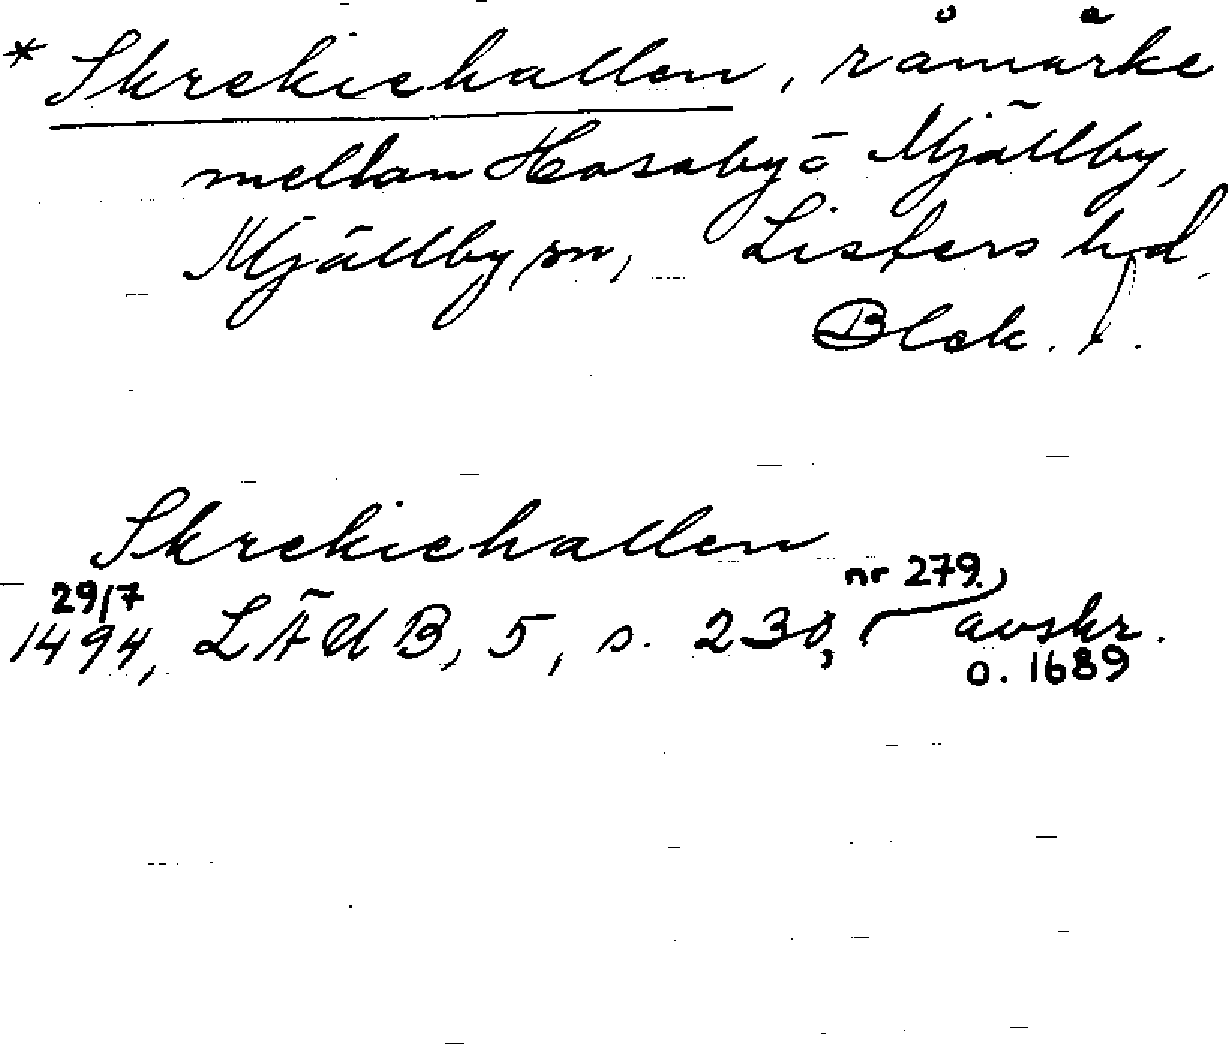 * Skrekiehallen, råmärke
mellan Hosaby o Mjällby,
Mjällby sn, Listers hd,
Blek.
Skrekiehallen
29/7 nr 279.
1494, LÄUB, 5, s. 230, avskr.
o. 1689